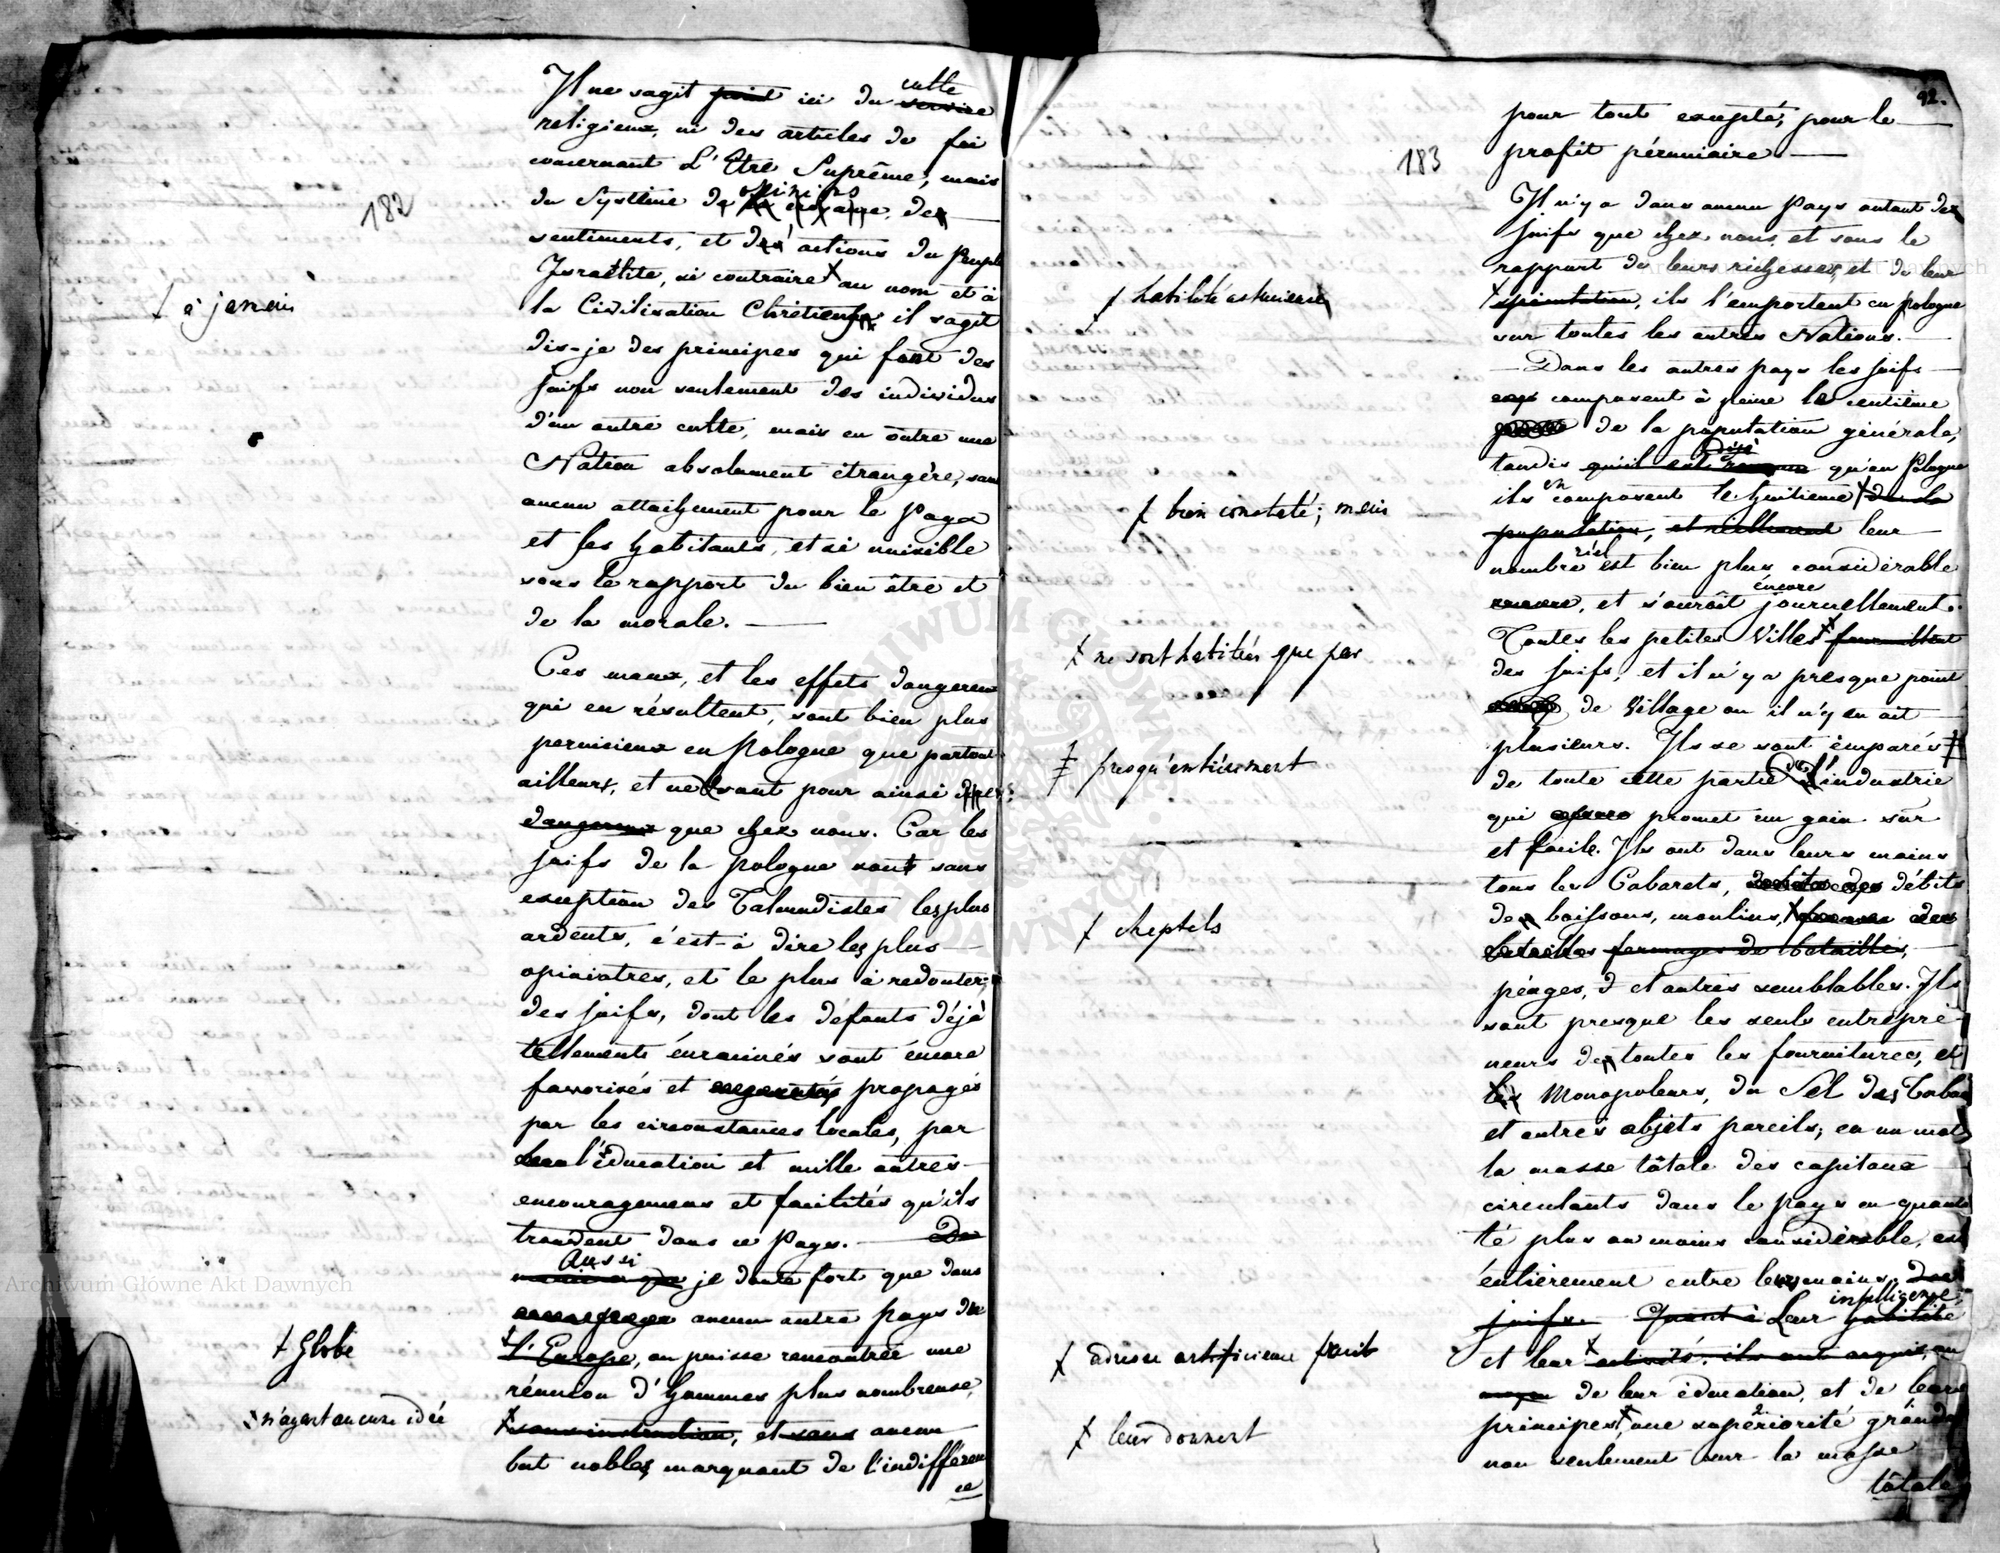 182
† à jamais
† Globe
× n'ayent aucune idée
culte
Il ne sagit point ici du service
religieux, ni des articles de foi
concernant L'Etre Suprême, mais
opinions
du Systême de la croyance, des
sentiments, et des actions du peuple
Israëlite, si contraire † au nom et à
la Civilisation Chrétienne, il sagit
dis-je des principes qui font des
juifs non seulement des individus
d'un autre culte, mais en outre une
Nation absolument étrangère, sans
aucun attachement pour le Pays
et ses habitants, et si nuisible
sous le rapport du bien être et
de la morale. —
Ces maux, et les effets dangereux
qui en résultent, sont bien plus
pernicieux en Pologne que partout
ailleurs, et ne sont pour ainsi dire
dangereux que chez nous. Car les
juifs de la Pologne sont sans
exception des Talmudistes les plus
ardents, c'est-à dire les plus
opiniatres, et le plus à redouter;
des juifs, dont les défauts déjà
tellements énracinés sont éncore
favorisés et propagés
par les circonstances locales, par
l'éducation et mille autres
encouragemens et facilités qu'ils
trouvent dans ce Pays. — De
Aussi
je doute fort que dans
aucun autre pays de
† l'Europe, on puisse rencontrer une
réunion d'hommes plus nombreuse,
† sans instruction, et sans aucun
but noble, marquant de l'indifféren
ce
92.
183
† habilité astucieuse
† bien constaté; mais
† ne sont habitées que par
‡ presqu'entièrement
† cheptels
† adresse artificieuse fruit
† leur donnent
pour tout excepté, pour le
profit pécuniaire. —
Il n'y a dans aucun Pays autant des
juifs que chez nous, et sous le
rapport de leurs richesses, et de leur
† spéculation, ils l'emportent en Pologne
sur toutes les autres Nations. —
— Dans les autres pays les juifs —
composent à peine le centième
de la population générale,
déjà
tandis qu'il est qu'en Pologne
en
ils composent le huitième † de la
population, et leur
réel
nombre est bien plus considérable
éncore
encore, et s'accroît journellement.
Toutes les petites Villes † fourmillent
des juifs, et il n'y a presque point
de Village ou il n'y en ait
plusieurs. Ils se sont emparés ‡
de toute cette partie de l'industrie
qui promet un gain sûr
et facile. Ils ont dans leurs mains
tous les Cabarets, débits
de boissons, moulins, †
fermages de betailles,
péages, et autres semblables. Ils
sont presque les seuls entrepre-
neurs de toutes les fournitures, et
les Monopoleurs, du Sel des Tabac
et autres objets pareils; en un mot
la masse tôtale des capitaux
circulants dans le pays en quanti
té plus ou moins considérable, est
éntièrement entre leurs mains, des
intelligence,
juifs. Quant à Leur habilité
et leur † activité, ils ont acquis, au
moyen de leur éducation, et de leurs
principes, † une supériorité grande
non seulement sur la masse
tôtale
Archiwum Główne Akt Dawnych